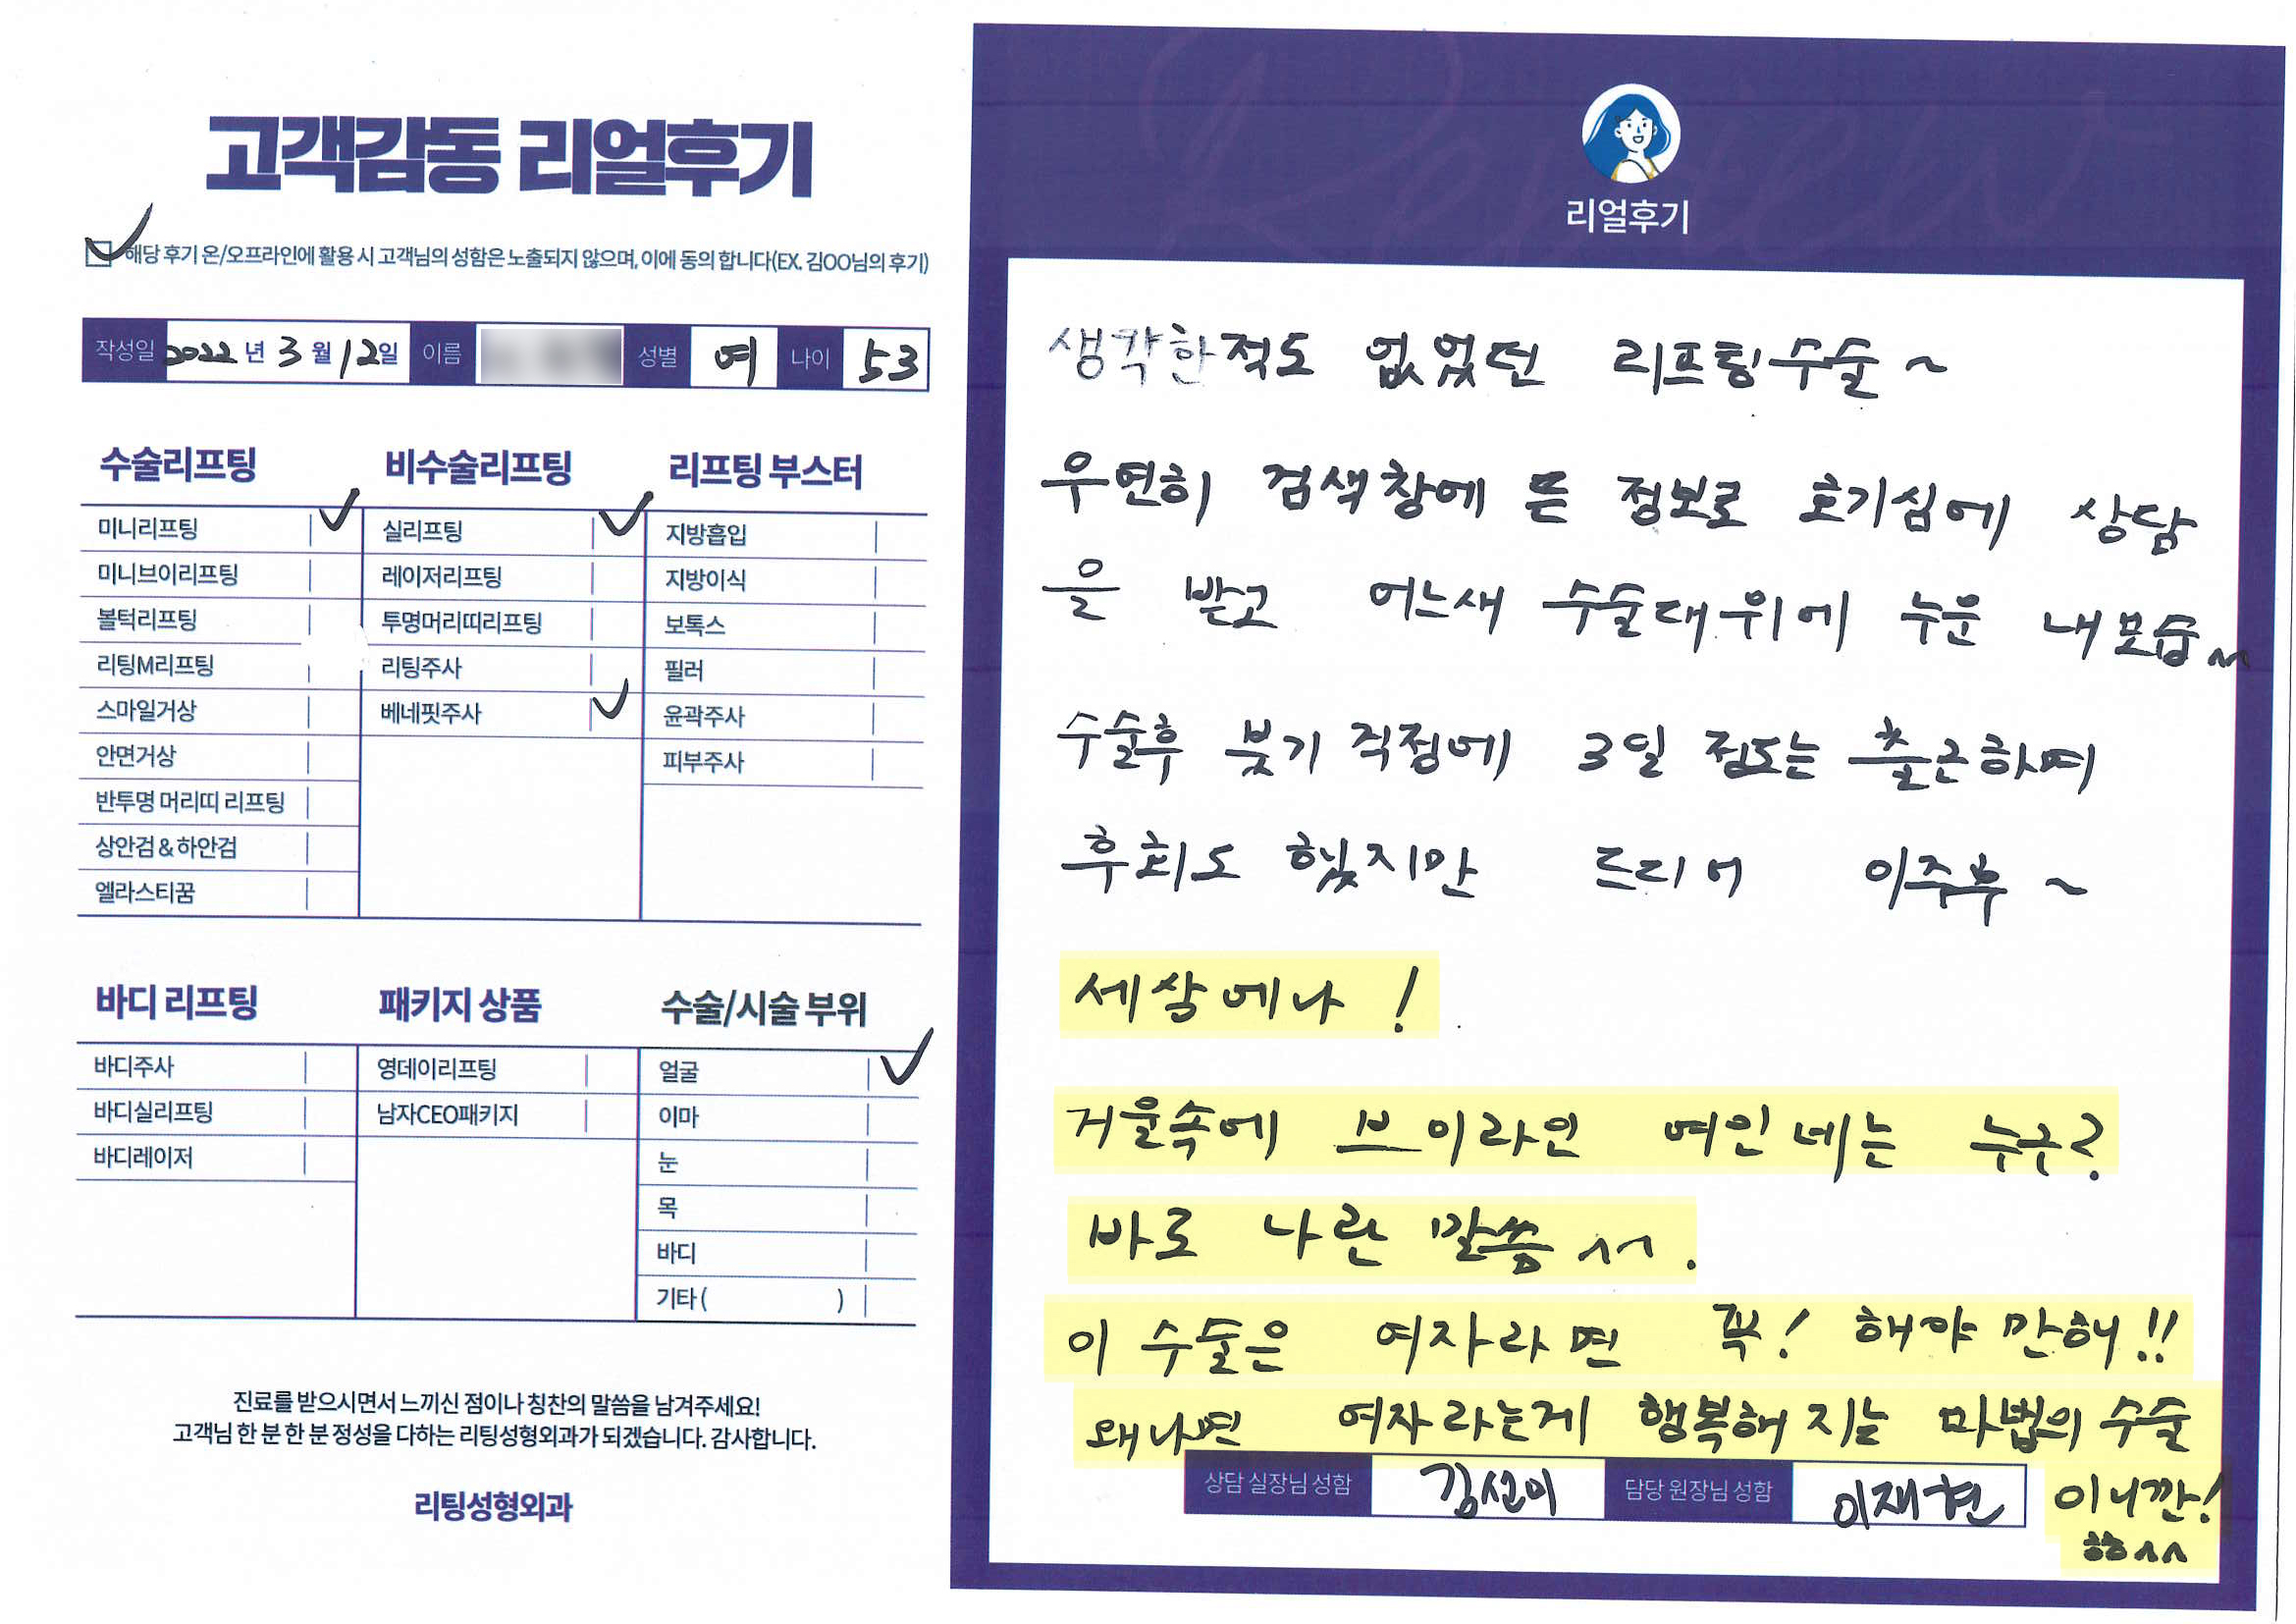 고객감동 리얼후기
해당 후기 온/오프라인에 활용 시 고객님의 성함은 노출되지 않으며, 이에 동의 합니다(EX. 김OO님의 후기)
작성일 2022 년 3 월 12일 이름 성별 여 나이 53
수술리프팅 비수술리프팅 리프팅 부스터
미니리프팅 실리프팅 지방흡입
미니브이리프팅 레이저리프팅 지방이식
볼턱리프팅 투명머리띠리프팅 보톡스
리팅M리프팅 리팅주사 필러
스마일거상 베네핏주사 윤곽주사
안면거상 피부주사
반투명 머리띠 리프팅
상안검 & 하안검
엘라스티꿈
바디 리프팅 패키지 상품 수술/시술 부위
바디주사 영데이리프팅 얼굴
바디실리프팅 남자CEO패키지 이마
바디레이저 눈
목
바디
기타 ( )
진료를 받으시면서 느끼신 점이나 칭찬의 말씀을 남겨주세요!
고객님 한 분 한 분 정성을 다하는 리팅성형외과가 되겠습니다. 감사합니다.
리팅성형외과
리얼후기
생각한적도 없었던 리프팅수술~
우연히 검색창에 뜬 정보로 호기심에 상담
을 받고 어느새 수술대 위에 누운 내모습^^
수술후 붓기 걱정에 3일 정도는 출근하며
후회도 했지만 드디어 이주후~
세상에나!
거울속에 브이라인 여인네는 누구?
바로 나란 말씀^^.
이 수술은 여자라면 꼭! 해야만해!!
왜냐면 여자라는게 행복해지는 마법의 수술
이니깐!
상담 실장님 성함 김선미 담당 원장님 성함 이재현
ㅎㅎ^^